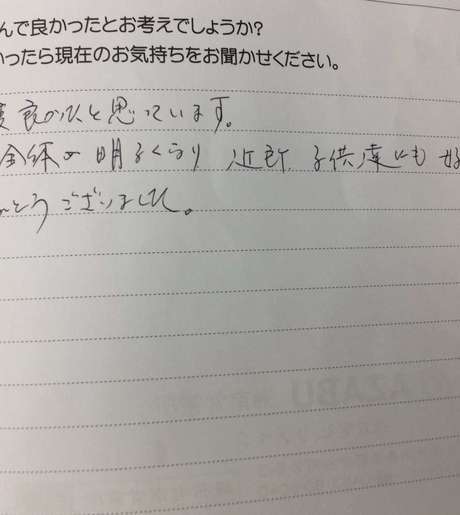 んで良かったとお考えでしょうか?
ったら現在のお気持ちをお聞かせください。
良かったと思っています。
全体の明るくなり 近所、子供達にも 好
とうございました。
AZABU